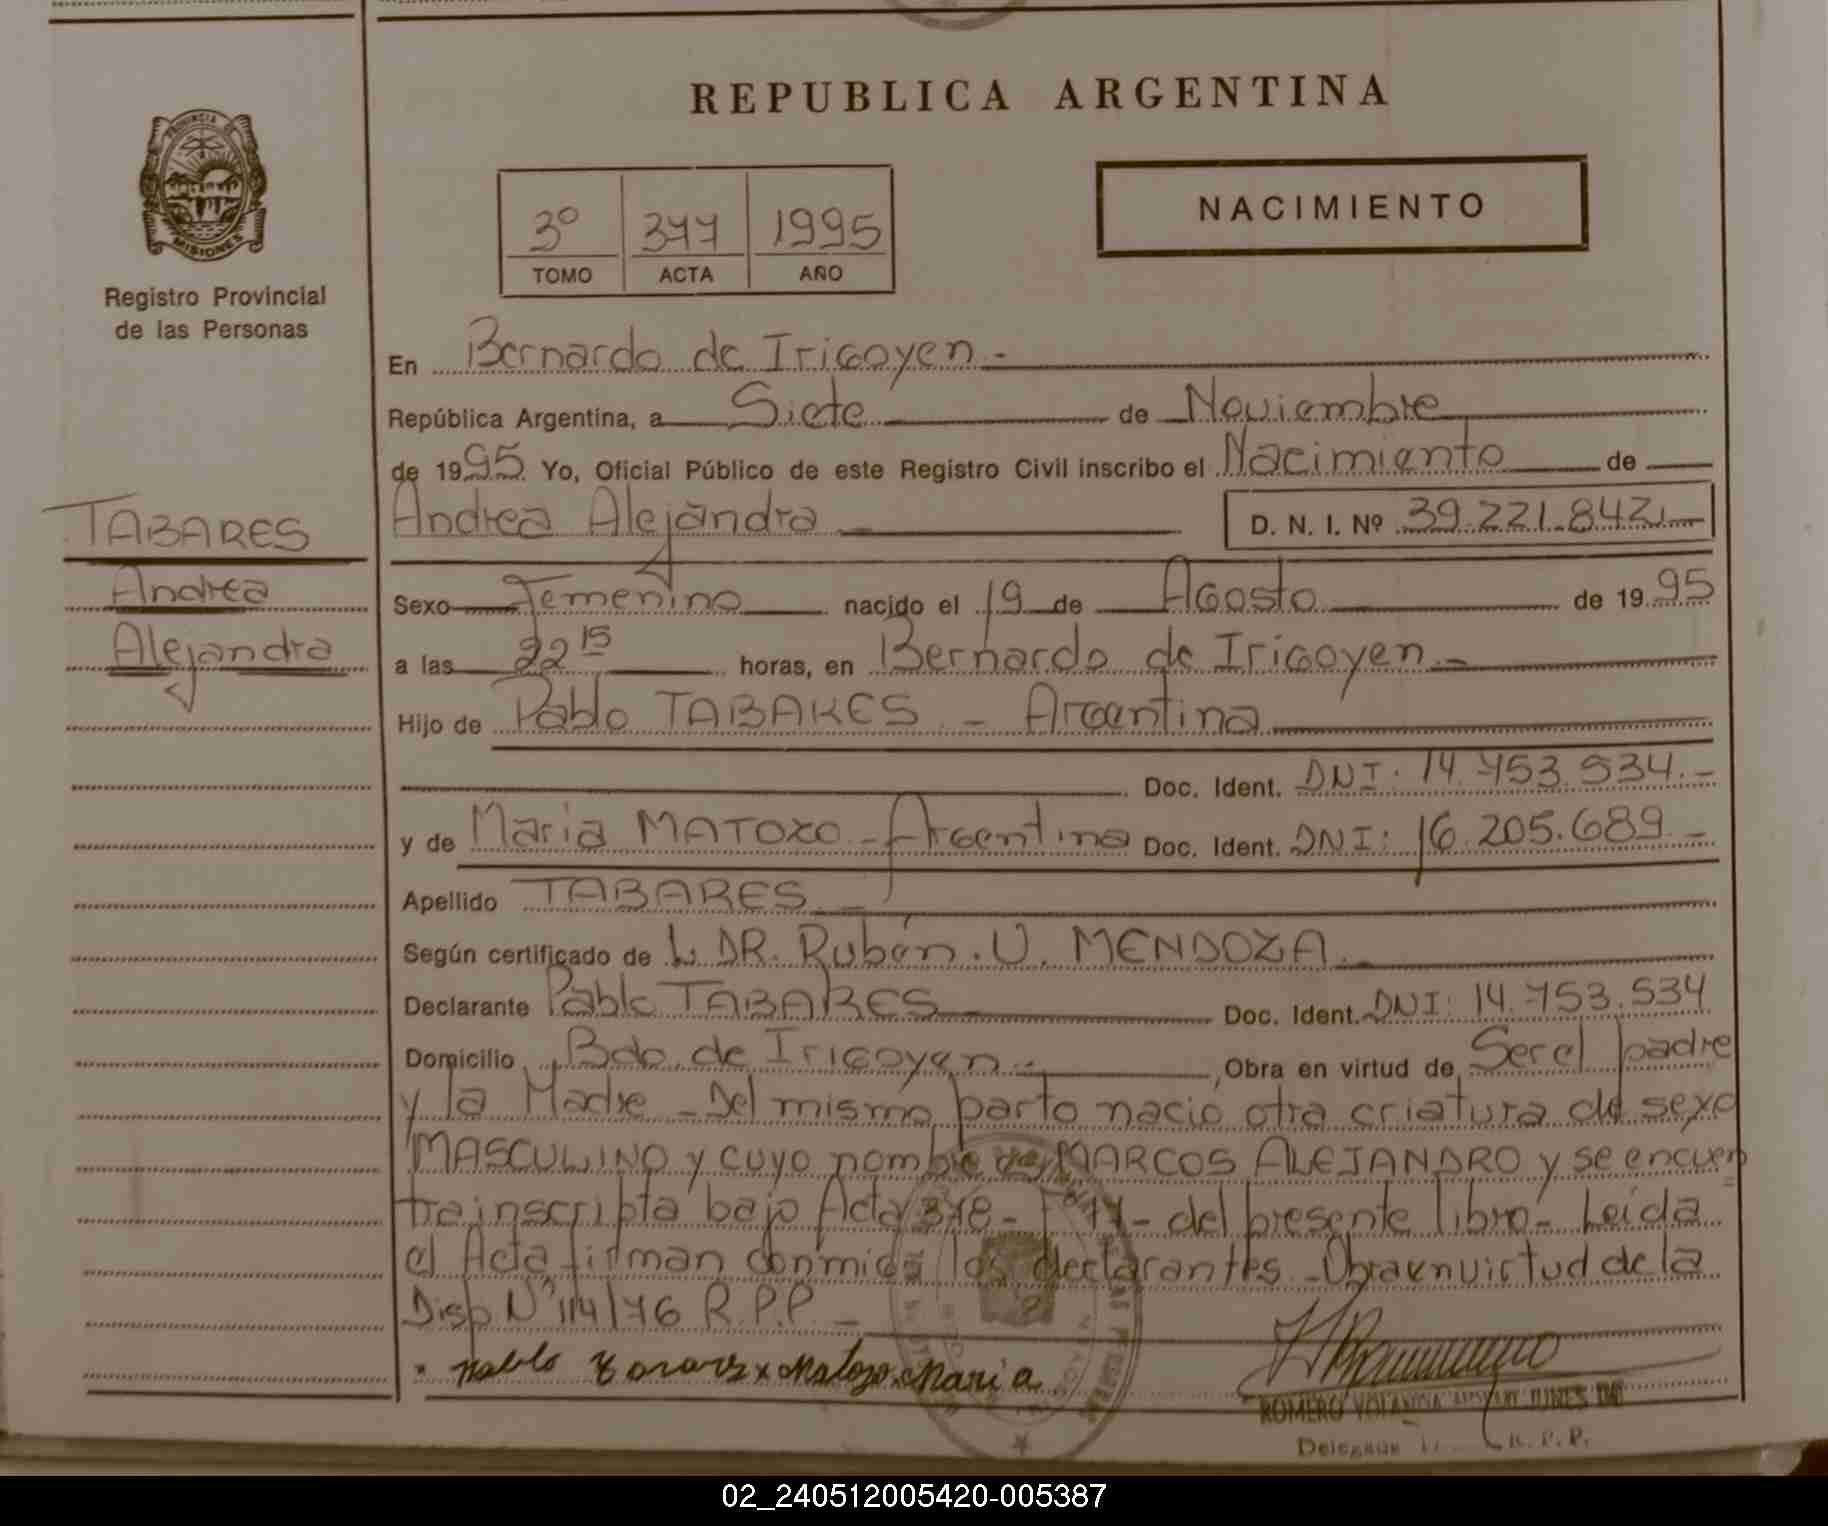 REPUBLICA ARGENTINA
PROVINCIA DE
MISIONES
Registro Provincial
de las Personas
3º 377 1995
TOMO ACTA AÑO
NACIMIENTO
En Bernardo de Irigoyen.-
República Argentina, a Siete de Noviembre
de 1995. Yo, Oficial Público de este Registro Civil inscribo el Nacimiento de
TABARES
Andrea
Alejandra
Andrea Alejandra D. N. I. Nº 39.221.842
Sexo Femenino nacido el 19 de Agosto de 1995
a las 22 15 horas, en Bernardo de Irigoyen.-
Hijo de Pablo TABARES - Argentina
Doc. Ident. DNI: 14.753.534.-
y de Maria MATOZO - Argentina Doc. Ident. DNI: 16.205.689.-
Apellido TABARES.-
Según certificado de L. DR. Rubén. U. MENDOZA.-
Declarante Pablo TABARES Doc. Ident. DNI: 14.753.534
Domicilio Bdo. de Irigoyen.- , Obra en virtud de Ser el padre
y la Madre - Del mismo parto nació otra criatura de sexo
MASCULINO y cuyo nombre es MARCOS ALEJANDRO y se encuen
tra inscripta bajo Acta 378 - Fº 77 - del presente libro - Leída
el Acta firman conmigo los declarantes - Obra en virtud de la
Disp Nº 114/76 R.P.P. -
Pablo x Matozo Maria
ROMERO YOLANDA
R. P. P.
02_240512005420-005387